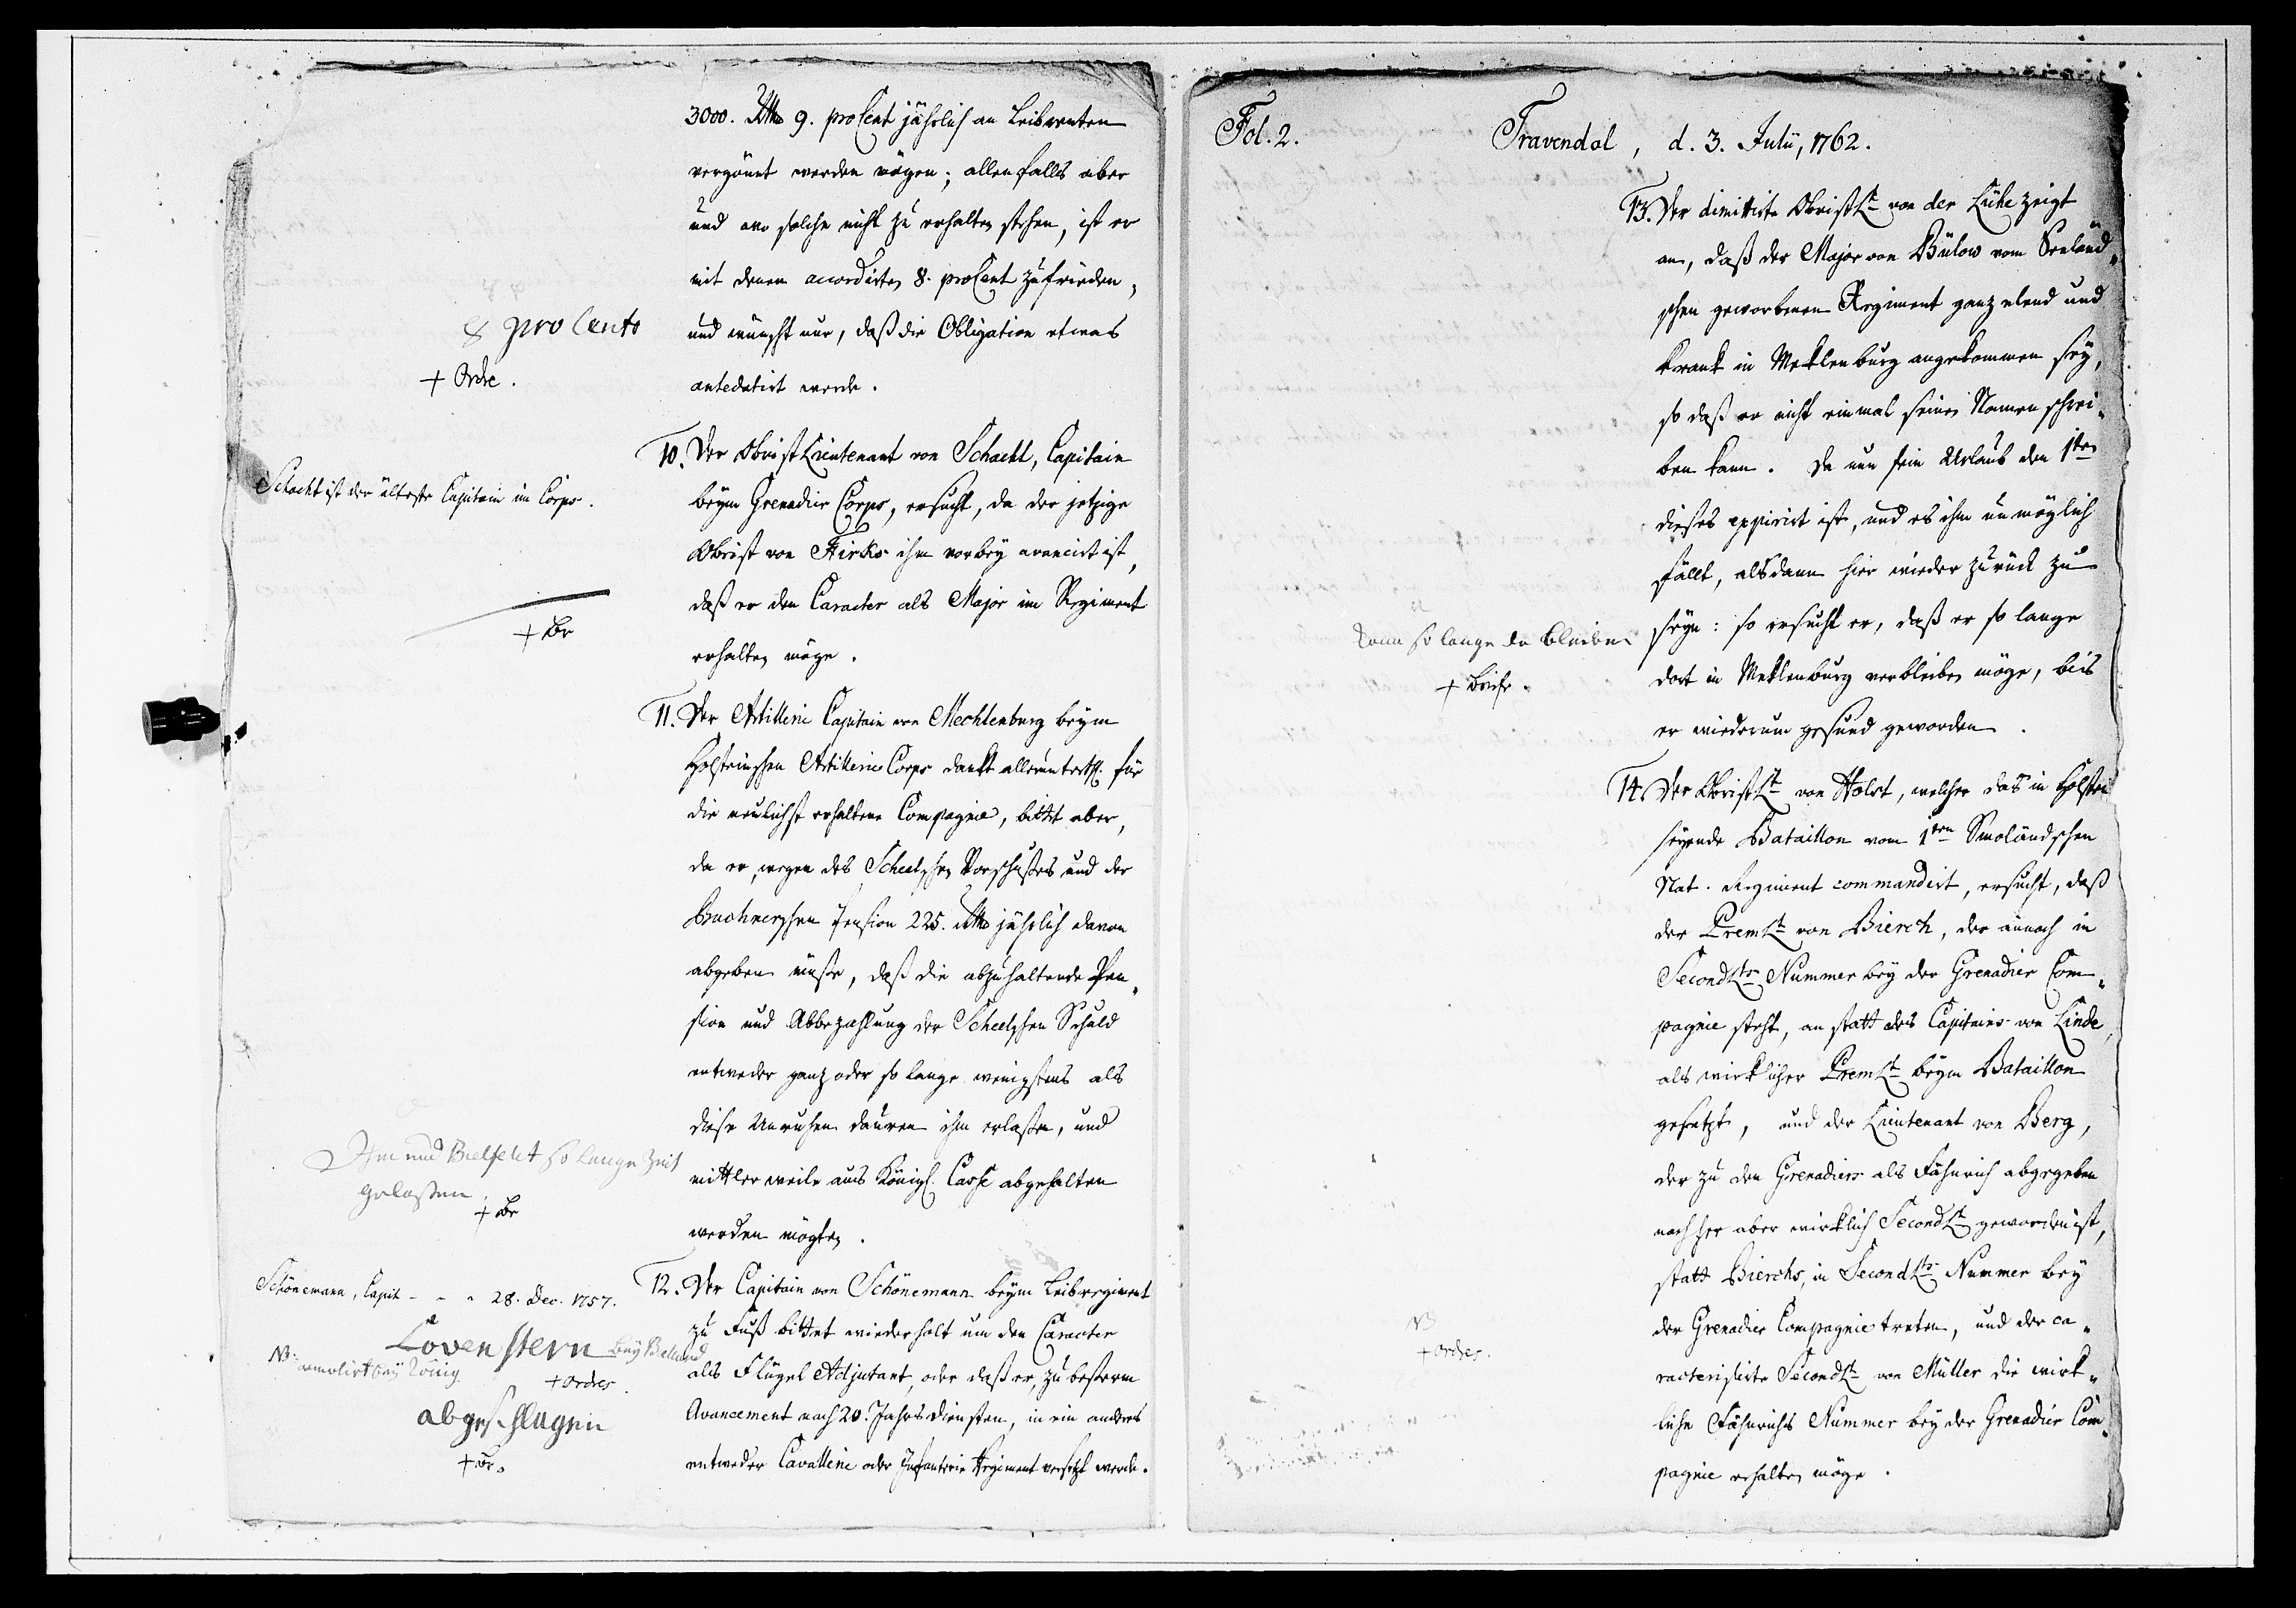 3000. Rthl 9. proCent jährlich an Leibrenten
vergönnt werden mögen; allenfalls aber
und wo solche nicht zu erhalten stehen, ist er
mit denen accordirten 8. proCent zufrieden,
und wünscht nur, daß die Obligation etwas
antedatirt werde.
8 pro Cento
+ Ordre.
10. Der Obristlieutenant von Schackt, Capitain
beym Grenadier Corps, ersucht, da der jetzige
Obrist von Firks ihm vorbey avancirt ist,
daß er den Caracter als Major im Regiment
erhalten möge.
Schackt ist der älteste Capitain im Corps.
+ Br
11. Der Artillerie Capitain von Mechlenburg beym
Holsteinschen Artillerie Corps dankt alleruntthgst. für
die neulichst erhaltene Compagnie, bittet aber,
da er, wegen des Scheelschen Vorschußes und der
Buchnerschen Pension 225. Rthl jährlich davon
abgeben müße, daß die abzuhaltende Pen„
sion und Abbezahlung der Scheelschen Schuld
entweder ganz oder so lange wenigstens als
diese Unruhen dauren ihm erlaßen, und
mittlerweile aus Königl. Casse abgehalten
werden mögten.
Ihm und Bielfeldt so lange Zeit
gelaßen.
+ Br
12. Der Capitain von Schönemann beym Leibregiment
zu Fuß bittet wiederholt um den Caracter
als Flügel Adjutant, oder daß er, zu beßerm
Avancement nach 20. Jahrs diensten, in ein anders
entweder Cavallerie oder Infanterie Regiment versetzt werde.
Schönemann, Capit - - - 28. Dec. 1757.
Lovenstern bey
NB:
+ Ordres.
abgeschlagen
+ Br.
Fol. 2.
Travendal, d. 3. Julii, 1762.
13. Der dimittirte Obristlt von der Lühe zeigt
an, daß der Major von Bülow vom Seeländ„
schen geworbenen Regiment ganz elend und
krank in Meklenburg angekommen sey,
so daß er nicht einmal seinen Namen schrei„
ben kann. Da nun sein Urlaub den 1ten
dieses expirirt ist, und es ihm unmöglich
fällt, alsdann hier wieder zurück zu
seyn: so ersucht er, daß er so lange
dort in Meklenburg verbleiben möge, bis
er wiederum gesund geworden.
Kann so lange da bleiben
+ Briefe.
14. Der Obristlt von Holst, welcher das in Holstei
seyende Bataillon vom 1ten Smoländschen
Nat. Regiment commandirt, ersucht, daß
der PremLt von Bierch, der annoch in
SecondLts Nummer bey der Grenadier Com„
pagnie steht, an statt des Capitains von Linde,
als wirklicher PremLt beym Bataillon
gesetzt, und der Lieutenant von Berg,
der zu den Grenadiers als Fähnrich abgegeben
nachher aber wirklich SecondLt geworden ist,
statt Bierchs, in SecondLts Nummer bey
der Grenadier Compagnie treten, und der ca„
racterisirte SecondLt von Müller die wirk„
liche Fähnrichs Nummer bey der Grenadier Com„
pagnie erhalten möge.
NB
+ Ordres.